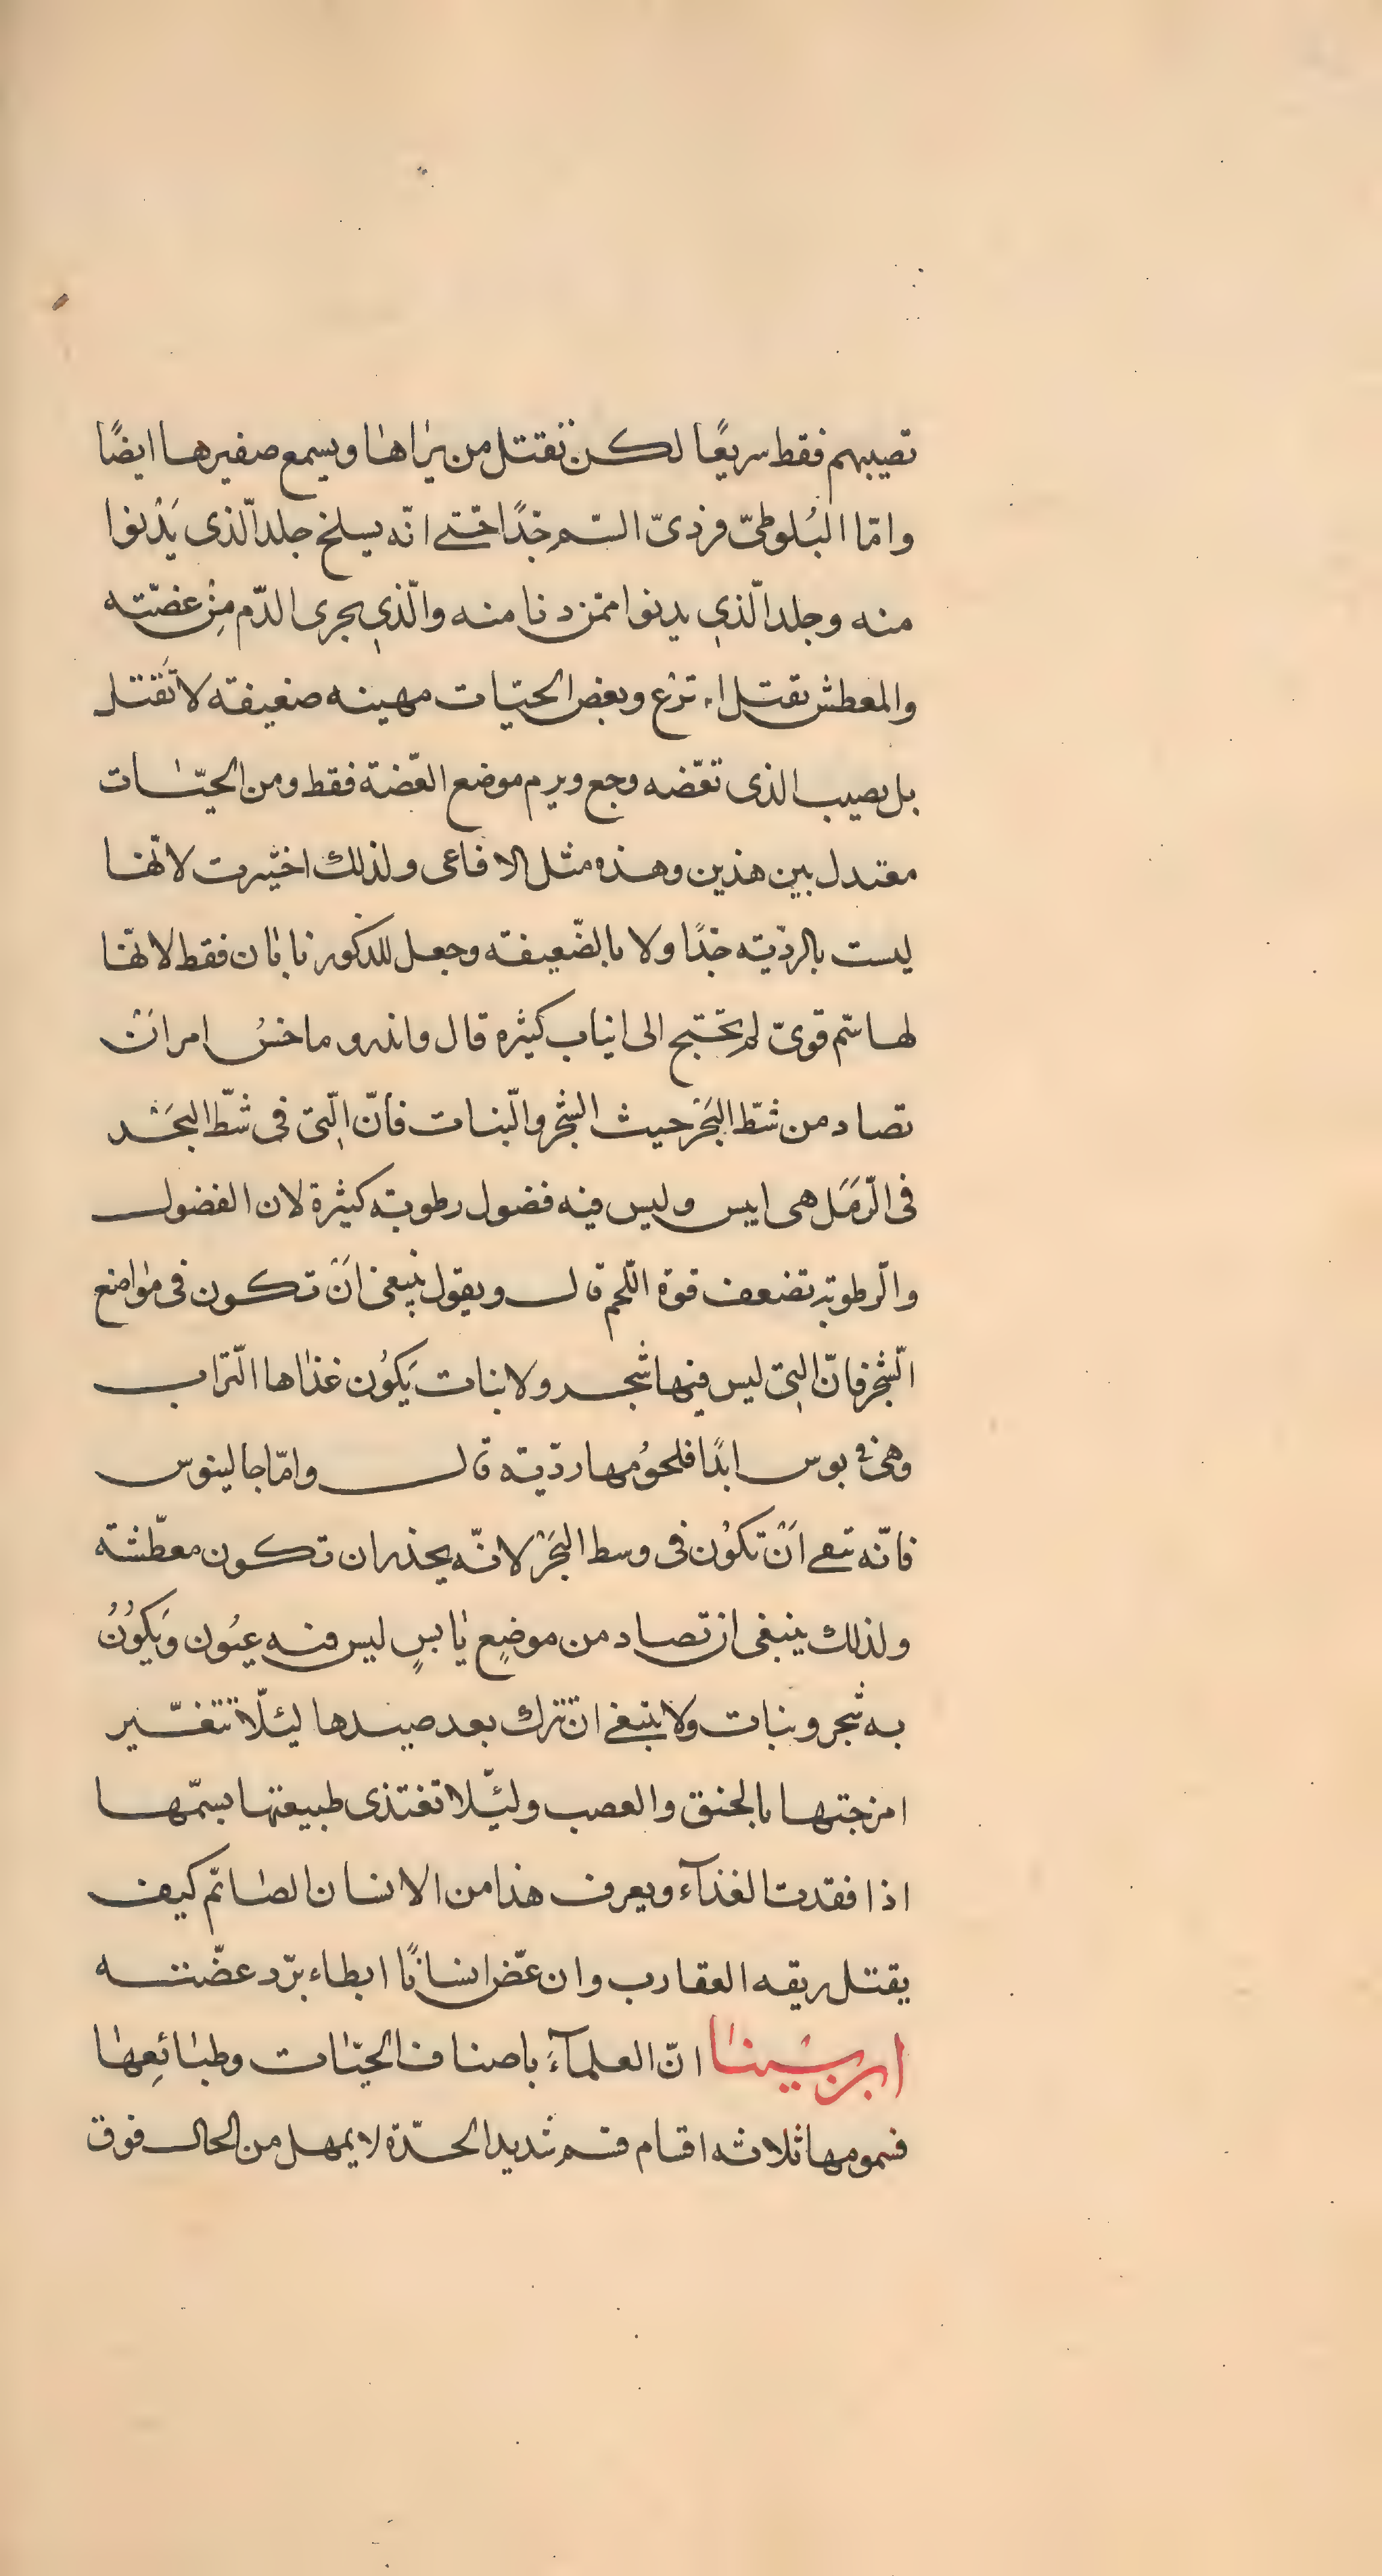 تصيبهم فقط سريعًا لكن تقتل من يراها ويسمع صفيرها ايضًا
وامّا البُلوطىّ فردىّ السّم جدًا حتى انّه يسلخ جلد الّذى يَدْنوا
منه وجلد الّذي يدنوا ممّن دنا منه والّذي يجرى الدّم مِنْ عضّته
والمعطش يقتل وبعض الحيّات مهينه ضعيفة لا تَقتل
بل يصيب الذى تعّضه وجع ويرم موضع العّضة فقط ومن الحيّات
معتدل بين هذين وهذه مثل الافاعى ولذلك اختيرت لانّها
ليست بالرديّه جدًا ولا بالضّعيفة وجعل للذكور نابان فقط لانّها
لها سّم قوىّ لم تحتج الى انياب كثيره قال واندروماخس امر انْ
تصاد من شطّ البَحْر حيث الشجر والنّبات فأنّ الّتى فى شطّ البحَر
فى الرّمَل هى ايبس وليس فيه فضول رطوبة كثيرة لان الفضول
والّرطوبة تضعف قوة اللّحم قال ويقول ينبغى اَنْ تكون فى مواضع
الّشجر فانّ التى ليس فيها شجر ولا نبات يَكوُن غذاها التّراب
وهى فى بوس ابدًا فلحوُمها رديّة قال وامّا جالينوس
فانّه اَنْ تكوُن فى وسط البَحْر لانّه يحذر ان تكون معطّشة
ولذلك ينبغى ان تصاد من موضعٍ يابسٍ ليس فيه عيُون وَيكوُنُ
به شجر ونبات ولا ينبغى ان تترك بعد صيدها ليئلّا تتغيّر
امزجتها بالخنق والعصب وليئّلا تغتذى طبيعتها بسمّها
اذا فقدت الغذآء ويعرف هذا من الانسان الصائم كيف
يقتل ريقه العقارب وان عّض انسانًا ابطاء برّد عضّته
ابن سينا انّ العلمآءَ باصناف الحيّات وطبائعِها
فسمومها ثلاثه اقسام قسم شديد الحدّة لا يمهل من الحال فوق